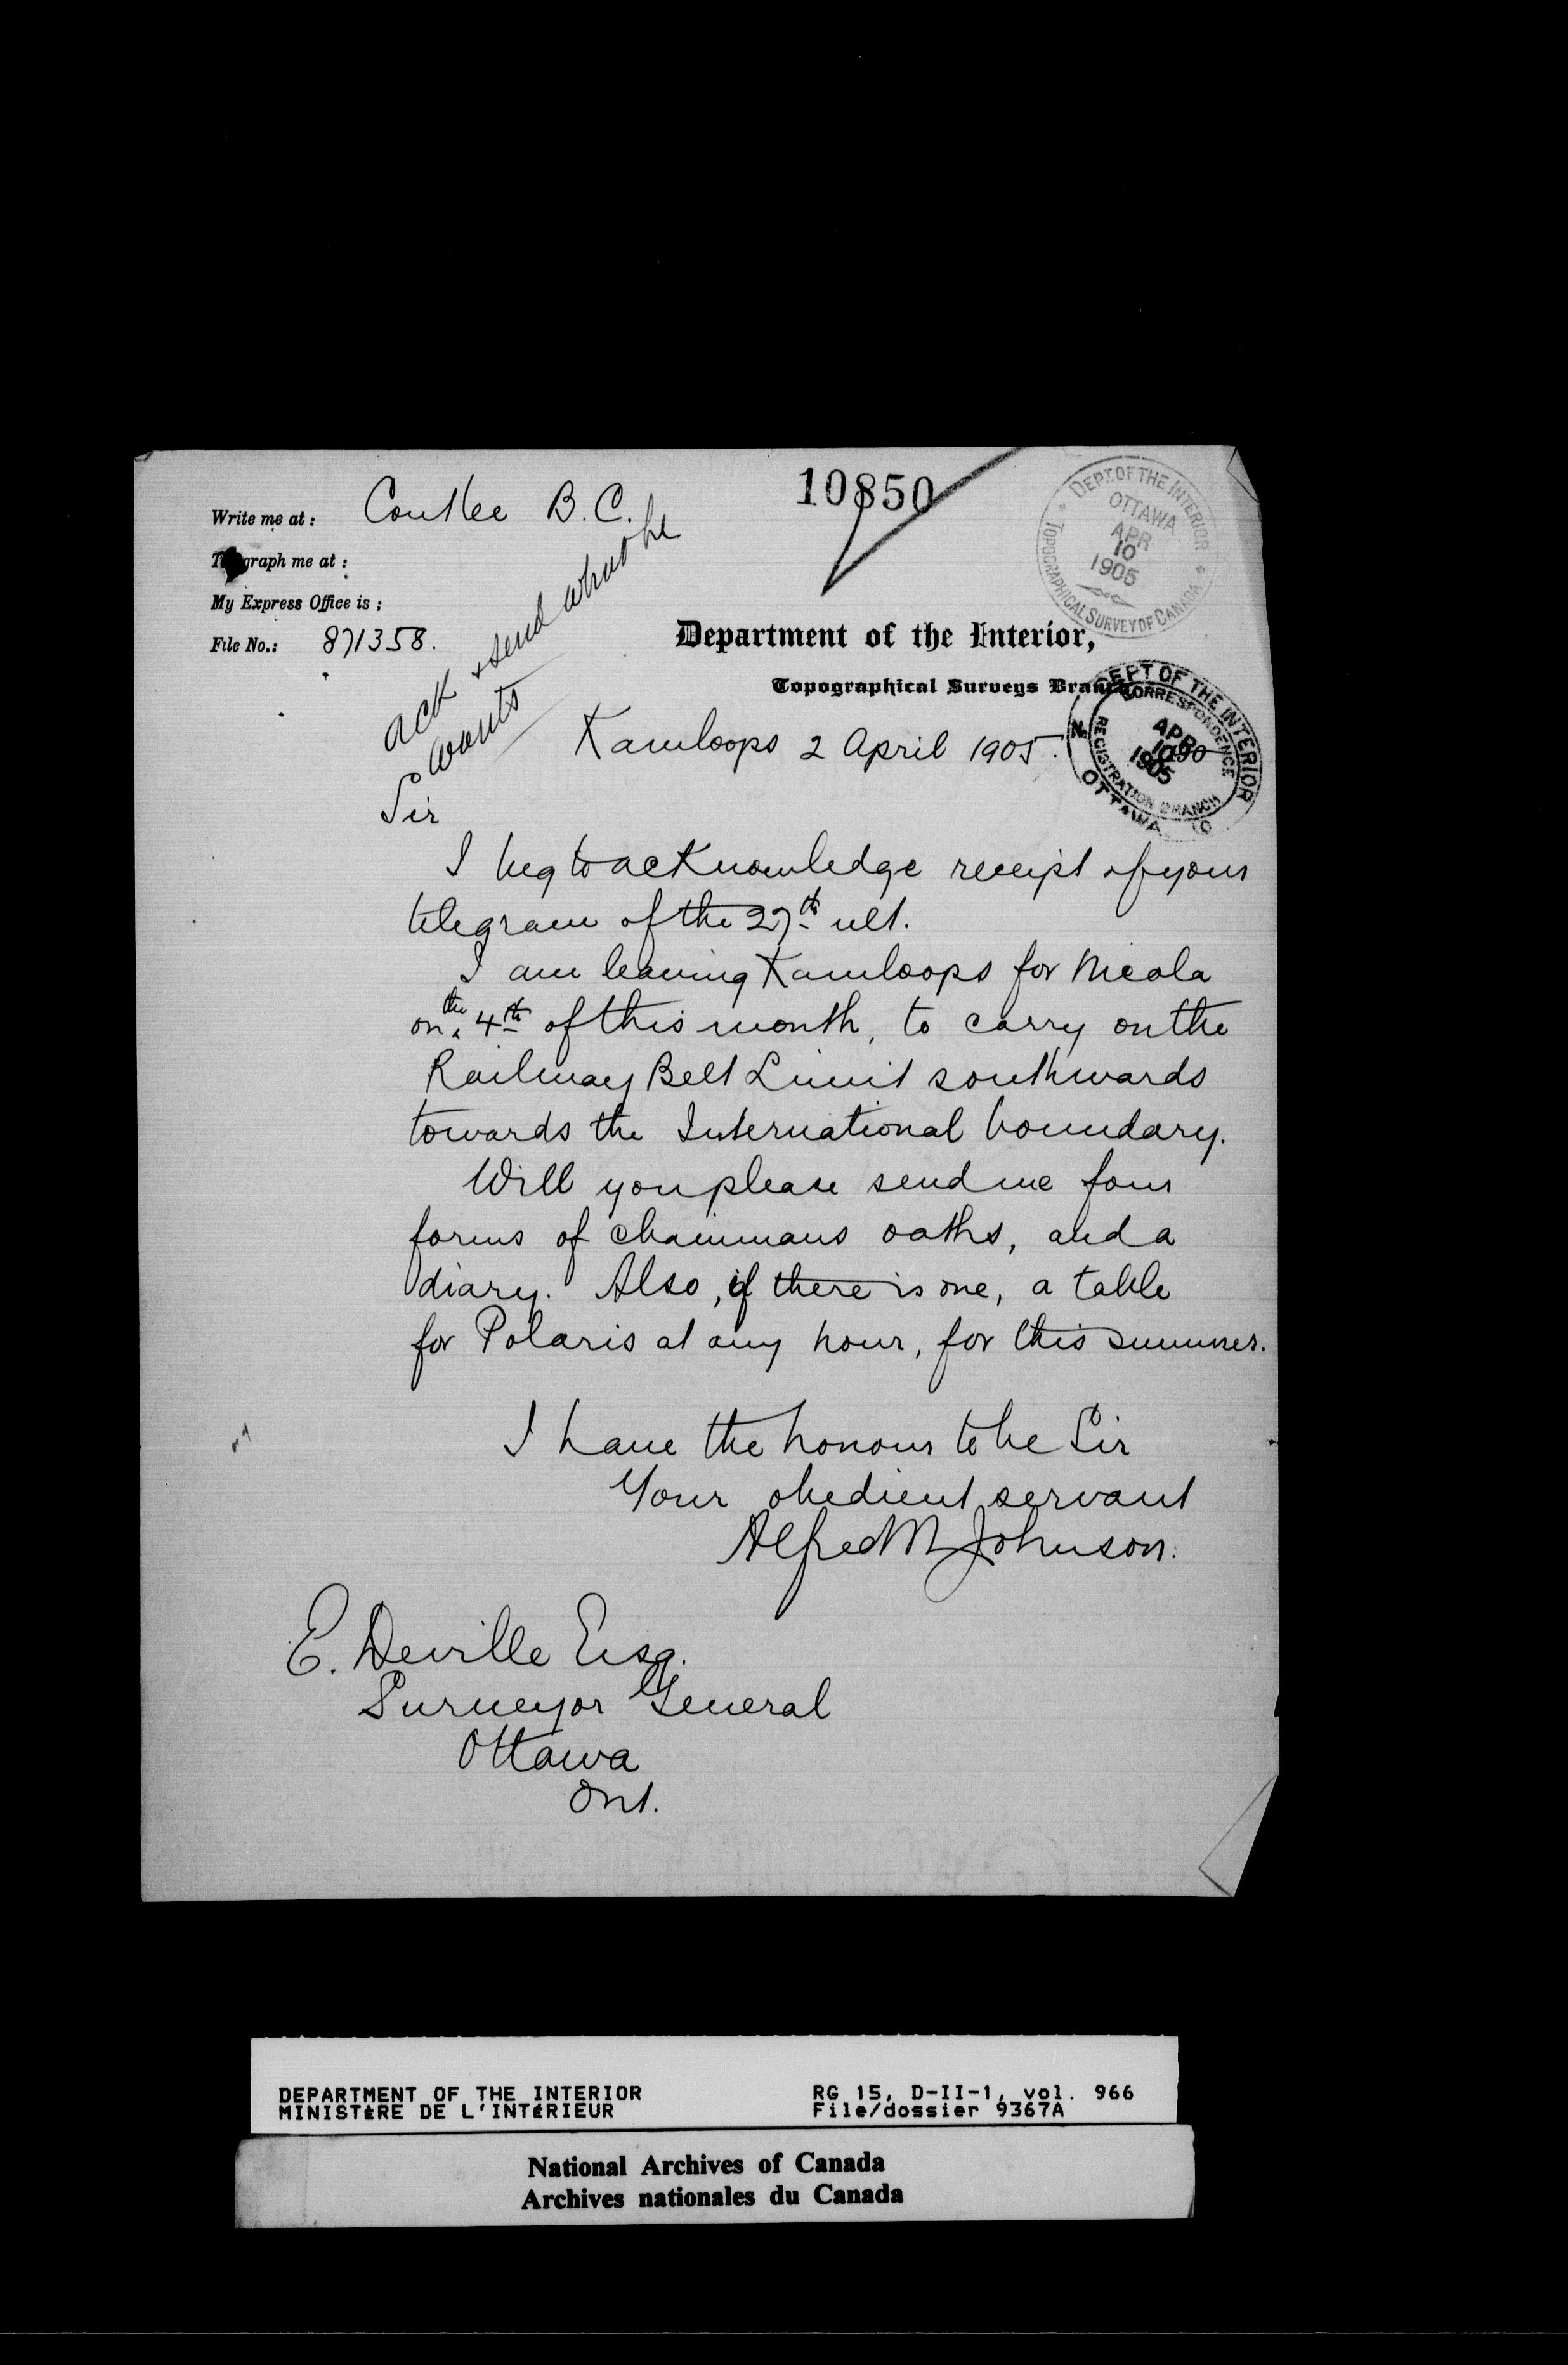 Write me at : Coutlee B.C.
10850
DEPT. OF THE INTERIOR
OTTAWA
APR
10
1905
TOPOGRAPHICAL SURVEY OF CANADA
Telegraph me at :
My Express Office is ;
File No.: 871358.
ack & send what he
wants
Department of the Interior,
Topographical Surveys Branch
DEPT OF THE INTERIOR
CORRESPONDENCE
APR
10
1905
REGISTRATION BRANCH
OTTAWA
Kamloops 2 April 1905.
Sir
I beg to acknowledge receipt of your
telegram of the 27th ult.
I am leaving Kamloops for Nicola
on the 4th of this month, to carry on the
Railway Belt Limit southwards
towards the International boundary.
Will you please send me four
forms of chainmans oaths, and a
diary. Also, if there is one, a table
for Polaris at any hour, for this summer.
I have the honour to be Sir
Your obedient servant
Alfred M Johnson.
E. Deville Esq.
Surveyor General
Ottawa
Ont.
DEPARTMENT OF THE INTERIOR RG 15, D-II-1, vol. 966
MINISTÈRE DE L'INTÉRIEUR File/dossier 9367A
National Archives of Canada
Archives nationales du Canada